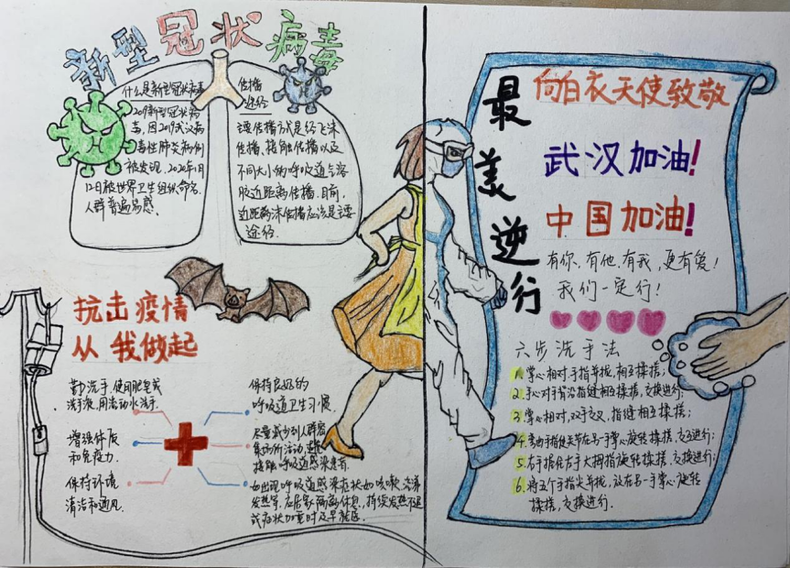 新型冠状病毒
什么是新型冠状病毒
2019新型冠状病
毒,因2019武汉病
毒性肺炎病例
被发现,2020年1月
12日被世界卫生组织命名.
人群普遍易感.
传播
途径
主要传播方式是经飞沫
传播、接触传播以及
不同大小的呼吸道气溶
胶近距离传播.目前,
近距离飞沫传播应该是主要
途径.
抗击疫情
从我做起
勤洗手,使用肥皂或
洗手液,用流动水洗手.
增强体质
和免疫力.
保持环境
清洁和通风.
保持良好的
呼吸道卫生习惯.
尽量减少到人群密
集场所活动,避免
接触呼吸道感染患者.
如出现呼吸道感染症状如咳嗽、流涕
发热等,应居家隔离休息,持续发热不退
或症状加重时及早就医.
最美逆行
向白衣天使致敬
武汉加油!
中国加油!
有你、有他、有我,更有爱!
我们一定行!
六步洗手法
1.掌心相对,手指并拢,相互揉搓;
2.手心对手背沿指缝相互揉搓,交换进行;
3.掌心相对,双手交叉,指缝相互揉搓;
4.弯曲手指使关节在另一手掌心旋转揉搓,交互进行;
5.右手握住左手大拇指旋转揉搓,交换进行;
6.将五个手指尖并拢,放在另一手掌心旋转
揉搓,交换进行.